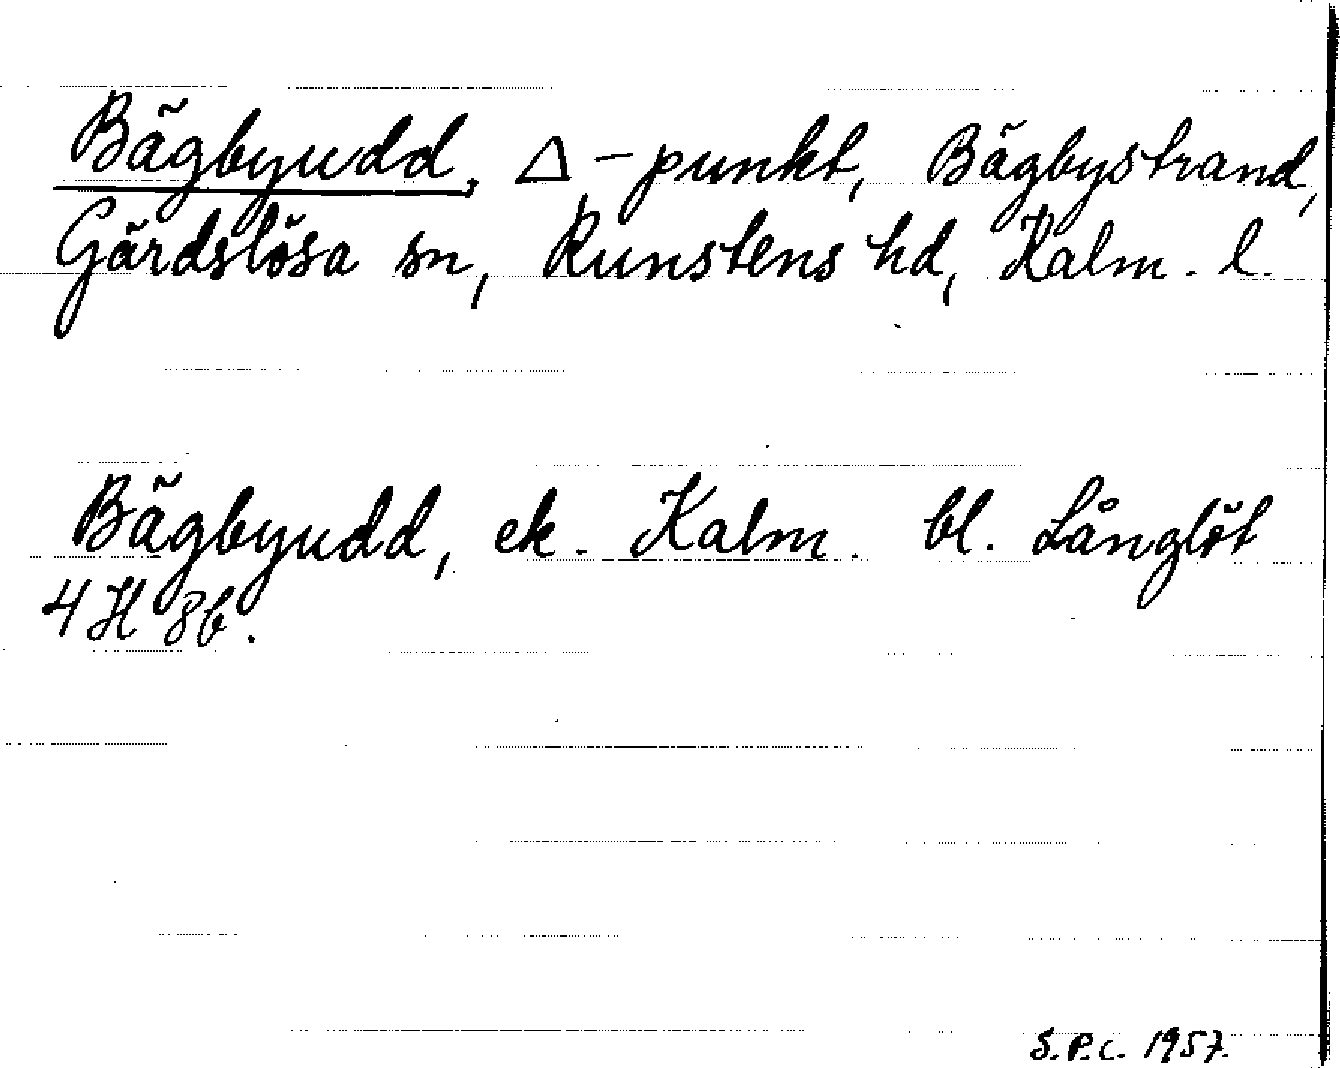 Bägbyudd, Δ-punkt, Bägbystrand,
Gärdslösa sn, Runstens hd, Kalm. l.
Bägbyudd, ek. Kalm. bl. Långlöt
4 H 8b.
S.P.C. 1957.